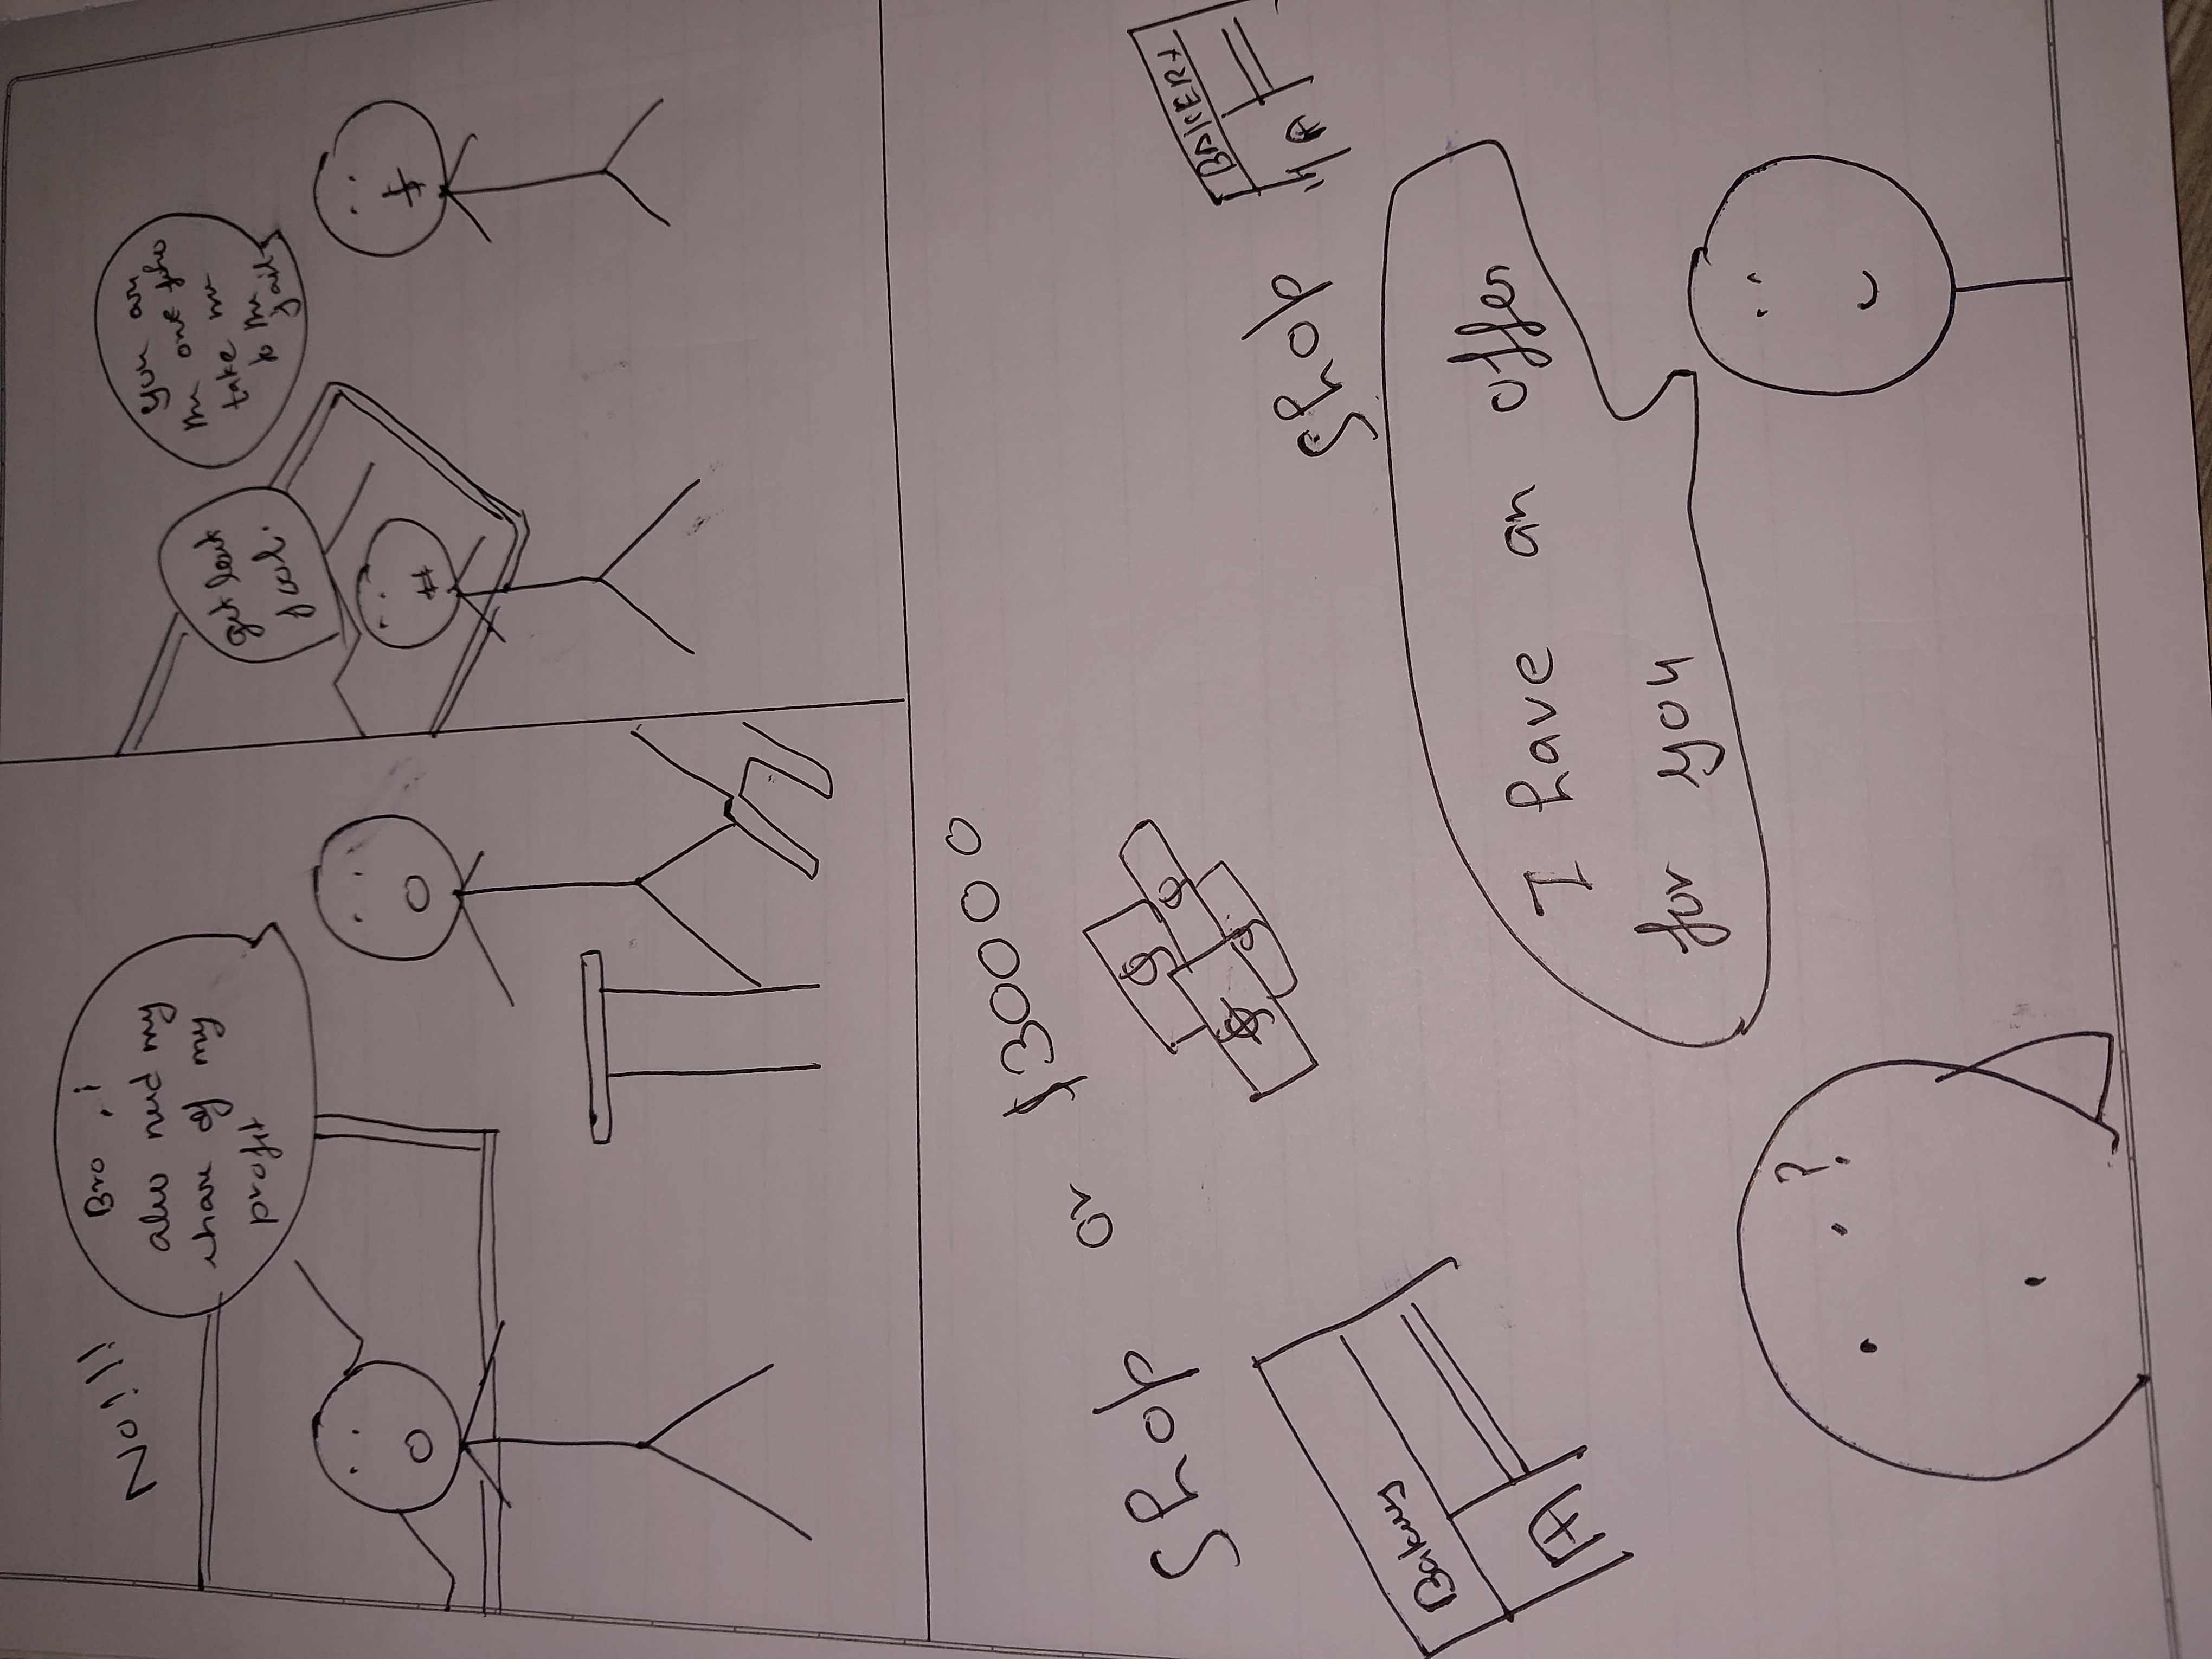 No!!!
Bro, i
also need my
share of my
profit
get lost
fool.
you are
the one who
take me
to the
jail
Shop or $30000
Bakery
Shop
BAKERY
I have an offer
for you
?